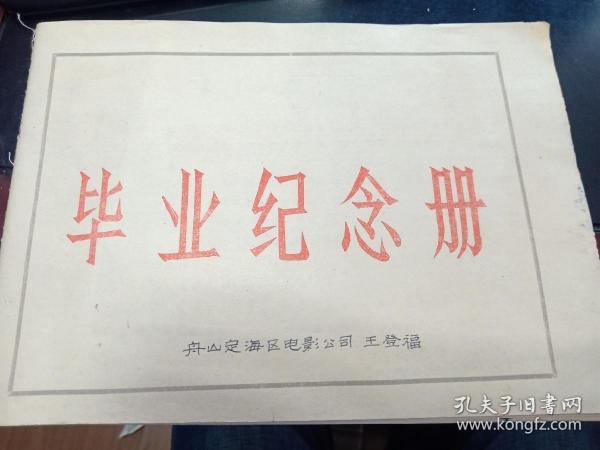 毕业纪念册
舟山定海区电影公司 王登福
孔夫子旧書网
www.kongfz.com